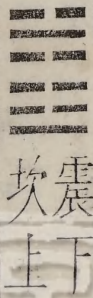 震下
坎上